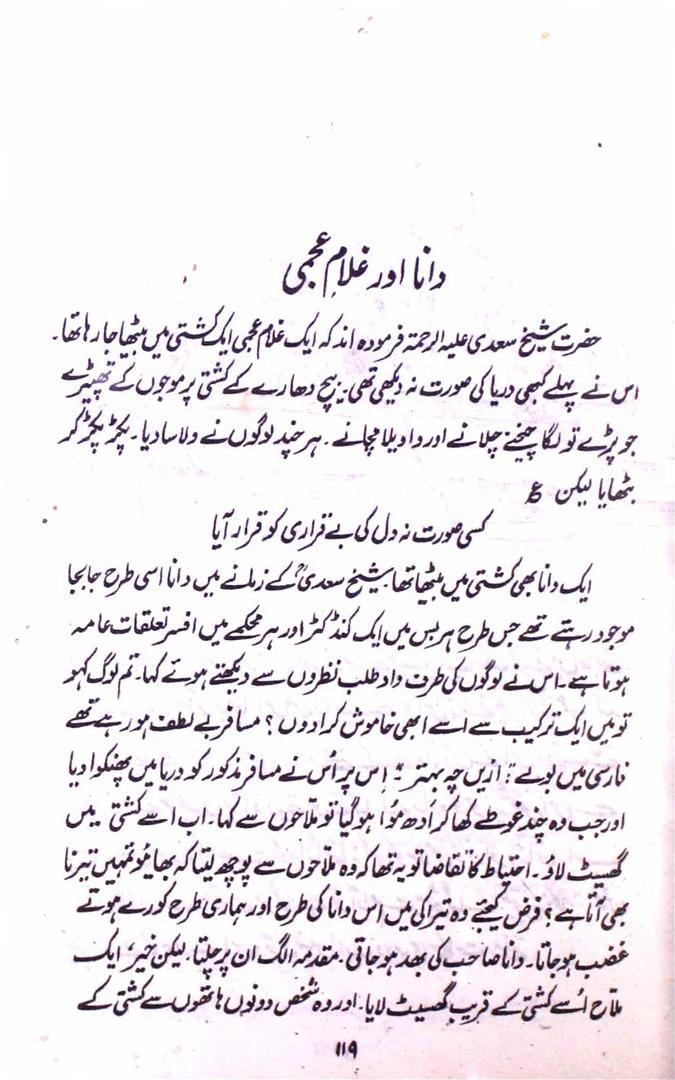 دانا اور غلامِ عجمی
حضرت شیخ سعدی علیہ الرحمۃ فرمودہ اند کہ ایک غلام عجمی ایک کشتی میں بیٹھا جا رہا تھا۔
اس نے پہلے کبھی دریا کی صورت نہ دیکھی تھی۔ بیچ دھارے کے کشتی پر موجوں کے تھپیڑے
جو پڑے تو لگا چیخنے چلانے اور واویلا مچانے۔ ہر چند لوگوں نے دلاسا دیا۔ پکڑ پکڑ کر
بٹھایا لیکن ع
کسی صورت نہ دل کی بے قراری کو قرار آیا
ایک دانا بھی کشتی میں بیٹھا تھا۔ شیخ سعدیؒ کے زمانے میں دانا اسی طرح جابجا
موجود رہتے تھے جس طرح ہر بس میں ایک کنڈکٹر اور ہر محکمے میں افسر تعلقات عامہ
ہوتا ہے۔ اس نے لوگوں کی طرف داد طلب نظروں سے دیکھتے ہوئے کہا۔ تم لوگ کہو
تو میں ایک ترکیب سے اسے ابھی خاموش کرا دوں؟ مسافر بے لطف ہو رہے تھے
فارسی میں بولے "ازیں چہ بہتر"۔ اِس پر اُس نے مسافر مذکور کو دریا میں پھنکوا دیا
اور جب وہ چند غوطے کھا کر اَدھ مُوا ہو گیا تو ملاحوں سے کہا۔ اب اسے کشتی میں
گھسیٹ لاؤ۔ احتیاط کا تقاضا تو یہ تھا کہ وہ ملاحوں سے پوچھ لیتا کہ بھایئو تمہیں تیرنا
بھی آتا ہے؟ فرض کیجئے وہ تیراکی میں اس دانا کی طرح اور ہماری طرح کورے ہوتے
غضب ہو جاتا۔ دانا صاحب کی بھد ہو جاتی۔ مقدمہ الگ ان پر چلتا۔ لیکن خیر، ایک
ملاح اُسے کشتی کے قریب گھسیٹ لایا۔ اور وہ شخص دونوں ہاتھوں سے کشتی کے
۱۱۹